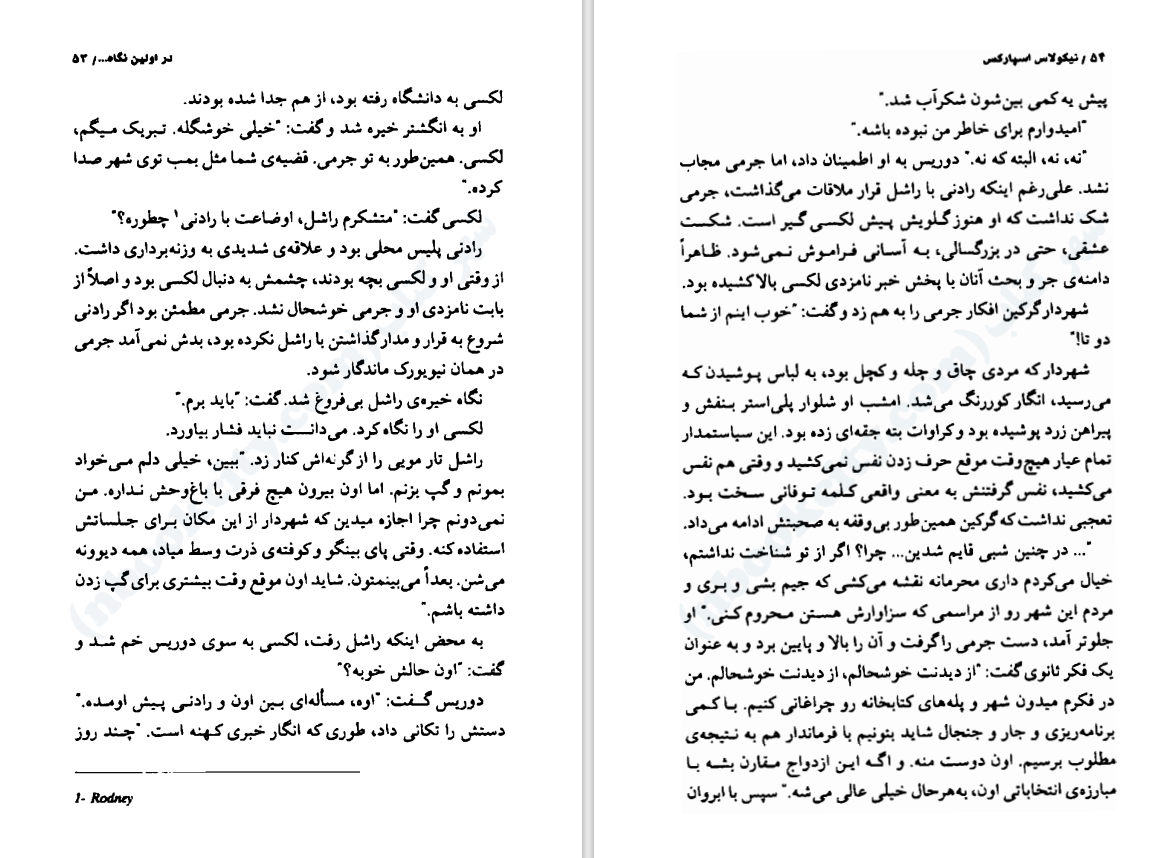 در اولین نگاه.../ ۵۳
لکسی به دانشگاه رفته بود، از هم جدا شده بودند.
او به انگشتر خیره شد و گفت: "خیلی خوشگله. تبریک میگم،
لکسی. همین‌طور به تو جرمی. قضیه‌ی شما مثل بمب توی شهر صدا
کرده."
لکسی گفت: "متشکرم راشل، اوضاعت با رادنی۱ چطوره؟"
رادنی پلیس محلی بود و علاقه‌ی شدیدی به وزنه‌برداری داشت.
از وقتی او و لکسی بچه بودند، چشمش به دنبال لکسی بود و اصلاً از
بابت نامزدی او و جرمی خوشحال نشد. جرمی مطمئن بود اگر رادنی
شروع به قرار و مدار گذاشتن با راشل نکرده بود، بدش نمی‌آمد جرمی
در همان نیویورک ماندگار شود.
نگاه خیره‌ی راشل بی‌فروغ شد. گفت: "باید برم."
لکسی او را نگاه کرد. می‌دانست نباید فشار بیاورد.
راشل تار مویی را از گونه‌اش کنار زد. "ببین، خیلی دلم می‌خواد
بمونم و گپ بزنم. اما اون بیرون هیچ فرقی با باغ‌وحش نداره. من
نمی‌دونم چرا اجازه میدین که شهردار از این مکان برای جلساتش
استفاده کنه. وقتی پای بینگو و کوفته‌ی ذرت وسط میاد، همه دیوونه
می‌شن. بعداً می‌بینمتون. شاید اون موقع وقت بیشتری برای گپ زدن
داشته باشم."
به محض اینکه راشل رفت، لکسی به سوی دوریس خم شد و
گفت: "اون حالش خوبه؟"
دوریس گفت: "اوه، مسأله‌ای بین اون و رادنی پیش اومده."
دستش را تکانی داد، طوری که انگار خبری کهنه است. "چند روز
1- Rodney
۵۴ / نیکولاس اسپارکس
پیش یه کمی بین‌شون شکرآب شد."
"امیدوارم برای خاطر من نبوده باشه."
"نه، نه، البته که نه." دوریس به او اطمینان داد، اما جرمی مجاب
نشد. علی‌رغم اینکه رادنی با راشل قرار ملاقات می‌گذاشت، جرمی
شک نداشت که او هنوز گلویش پیش لکسی گیر است. شکست
عشقی، حتی در بزرگسالی، به آسانی فراموش نمی‌شود. ظاهراً
دامنه‌ی جر و بحث آنان با پخش خبر نامزدی لکسی بالا کشیده بود.
شهردار گرکین افکار جرمی را به هم زد و گفت: "خوب اینم از شما
دو تا!"
شهردار که مردی چاق و چله و کچل بود، به لباس پوشیدن که
می‌رسید، انگار کوررنگ می‌شد. امشب او شلوار پلی‌استر بنفش و
پیراهن زرد پوشیده بود و کراوات بته جقه‌ای زده بود. این سیاستمدار
تمام عیار هیچ‌وقت موقع حرف زدن نفس نمی‌کشید و وقتی هم نفس
می‌کشید، نفس گرفتنش به معنی واقعی کلمه توفانی سخت بود.
تعجبی نداشت که گرکین همین‌طور بی‌وقفه به صحبتش ادامه می‌داد.
"... در چنین شبی قایم شدین... چرا؟ اگر از تو شناخت نداشتم،
خیال می‌کردم داری محرمانه نقشه می‌کشی که جیم بشی و بری و
مردم این شهر رو از مراسمی که سزاوارش هستن محروم کنی." او
جلوتر آمد، دست جرمی را گرفت و آن را بالا و پایین برد و به عنوان
یک فکر ثانوی گفت: "از دیدنت خوشحالم، از دیدنت خوشحالم. من
در فکرم میدون شهر و پله‌های کتابخانه رو چراغانی کنیم. با کمی
برنامه‌ریزی و جار و جنجال شاید بتونیم با فرماندار هم به نتیجه‌ی
مطلوب برسیم. اون دوست منه. و اگه این ازدواج مقارن بشه با
مبارزه‌ی انتخاباتی اون، به‌هرحال خیلی عالی می‌شه." سپس با ابروان